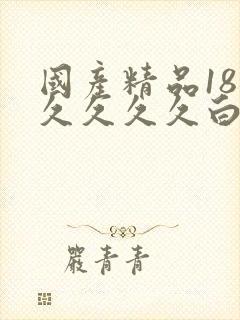 國產精品18
久久久久白
嚴青青